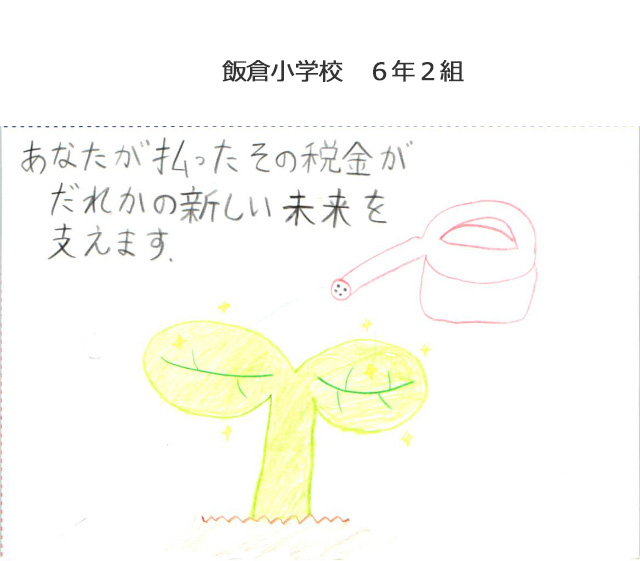 飯倉小学校　６年２組
あなたが払ったその税金が
だれかの新しい未来を
支えます.